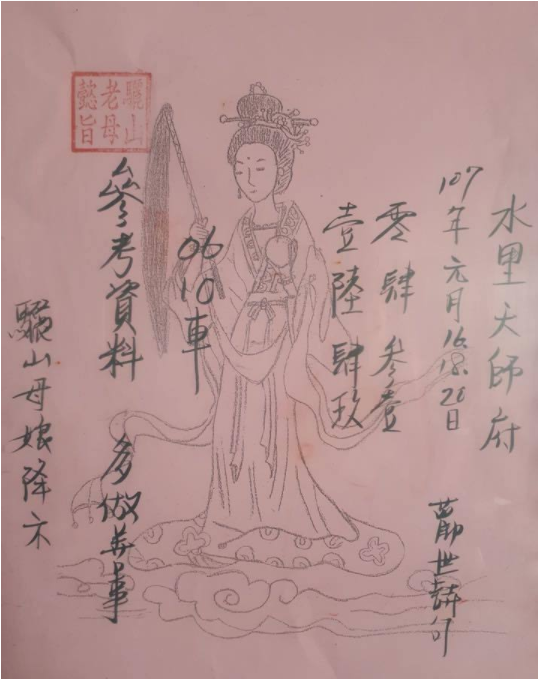 水里天師府
107年元月16.18.20日
勸世籤句
零肆 參壹
壹陸 肆玖
06
10車
參考資料 多做善事
驪山老母懿旨
驪山母娘降示